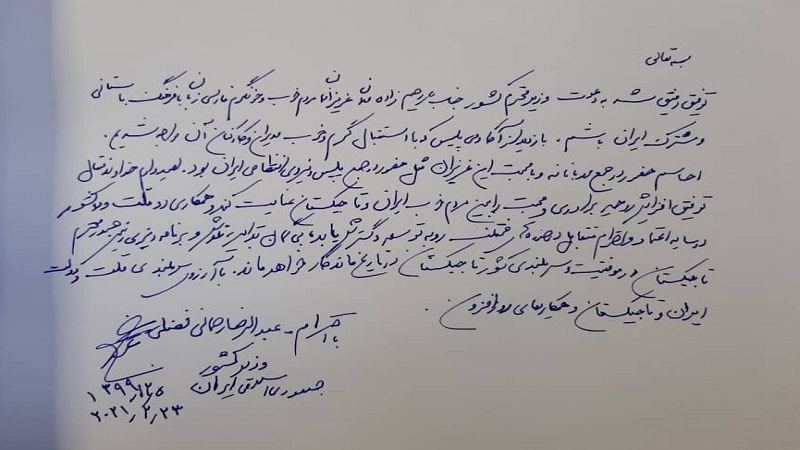 بسمه تعالی
توفیق رفیق شد به دعوت وزیر محترم کشور جناب رحیم زاده میهمان عزیزان مردم خوب و خونگرم فارسی زبان با فرهنگ باستانی
و مشترک ایران باشم. بازدید از آکادمی پلیس که با استقبال گرم و خوب مدیران و کارکنان آن مواجه شدیم.
احساس حضور در جمع صمیمانه و با محبت این عزیزان مثل حضور در جمع پلیس و نیروی انتظامی ایران بود. امیدوارم خداوند متعال
توفیق افزایش روحیه برادری و محبت را بین مردم خوب ایران و تاجیکستان عنایت کند و همکاری دو ملت و دو کشور
در سایه اعتماد و احترام متقابل در حوزه های مختلف رو به توسعه و گسترش یابد. بی گمان تدابیر، تلاش و برنامه ریزی رئیس جمهور محترم
تاجیکستان در موفقیت و سربلندی کشور تاجیکستان در تاریخ ماندگار خواهد ماند. با آرزوی سربلندی ملت و دولت
ایران و تاجیکستان و همکاریهای روزافزون.
با احترام - عبدالرضا رحمانی فضلی
وزیر کشور
جمهوری اسلامی ایران
۱۳۹۹/۱۲/۵
۲۰۲۱/۲/۲۳